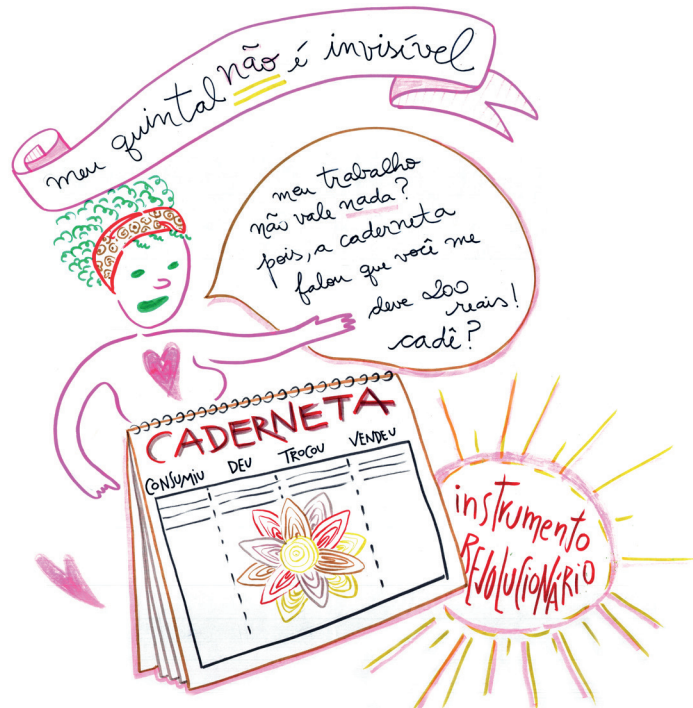 meu quintal não é invisível
meu trabalho
não vale nada?
pois, a caderneta
falou que você me
deve 200
reais!
cadê?
CADERNETA
CONSUMIU DEU TROCOU VENDEU
instrumento
REVOLUCIONÁRIO